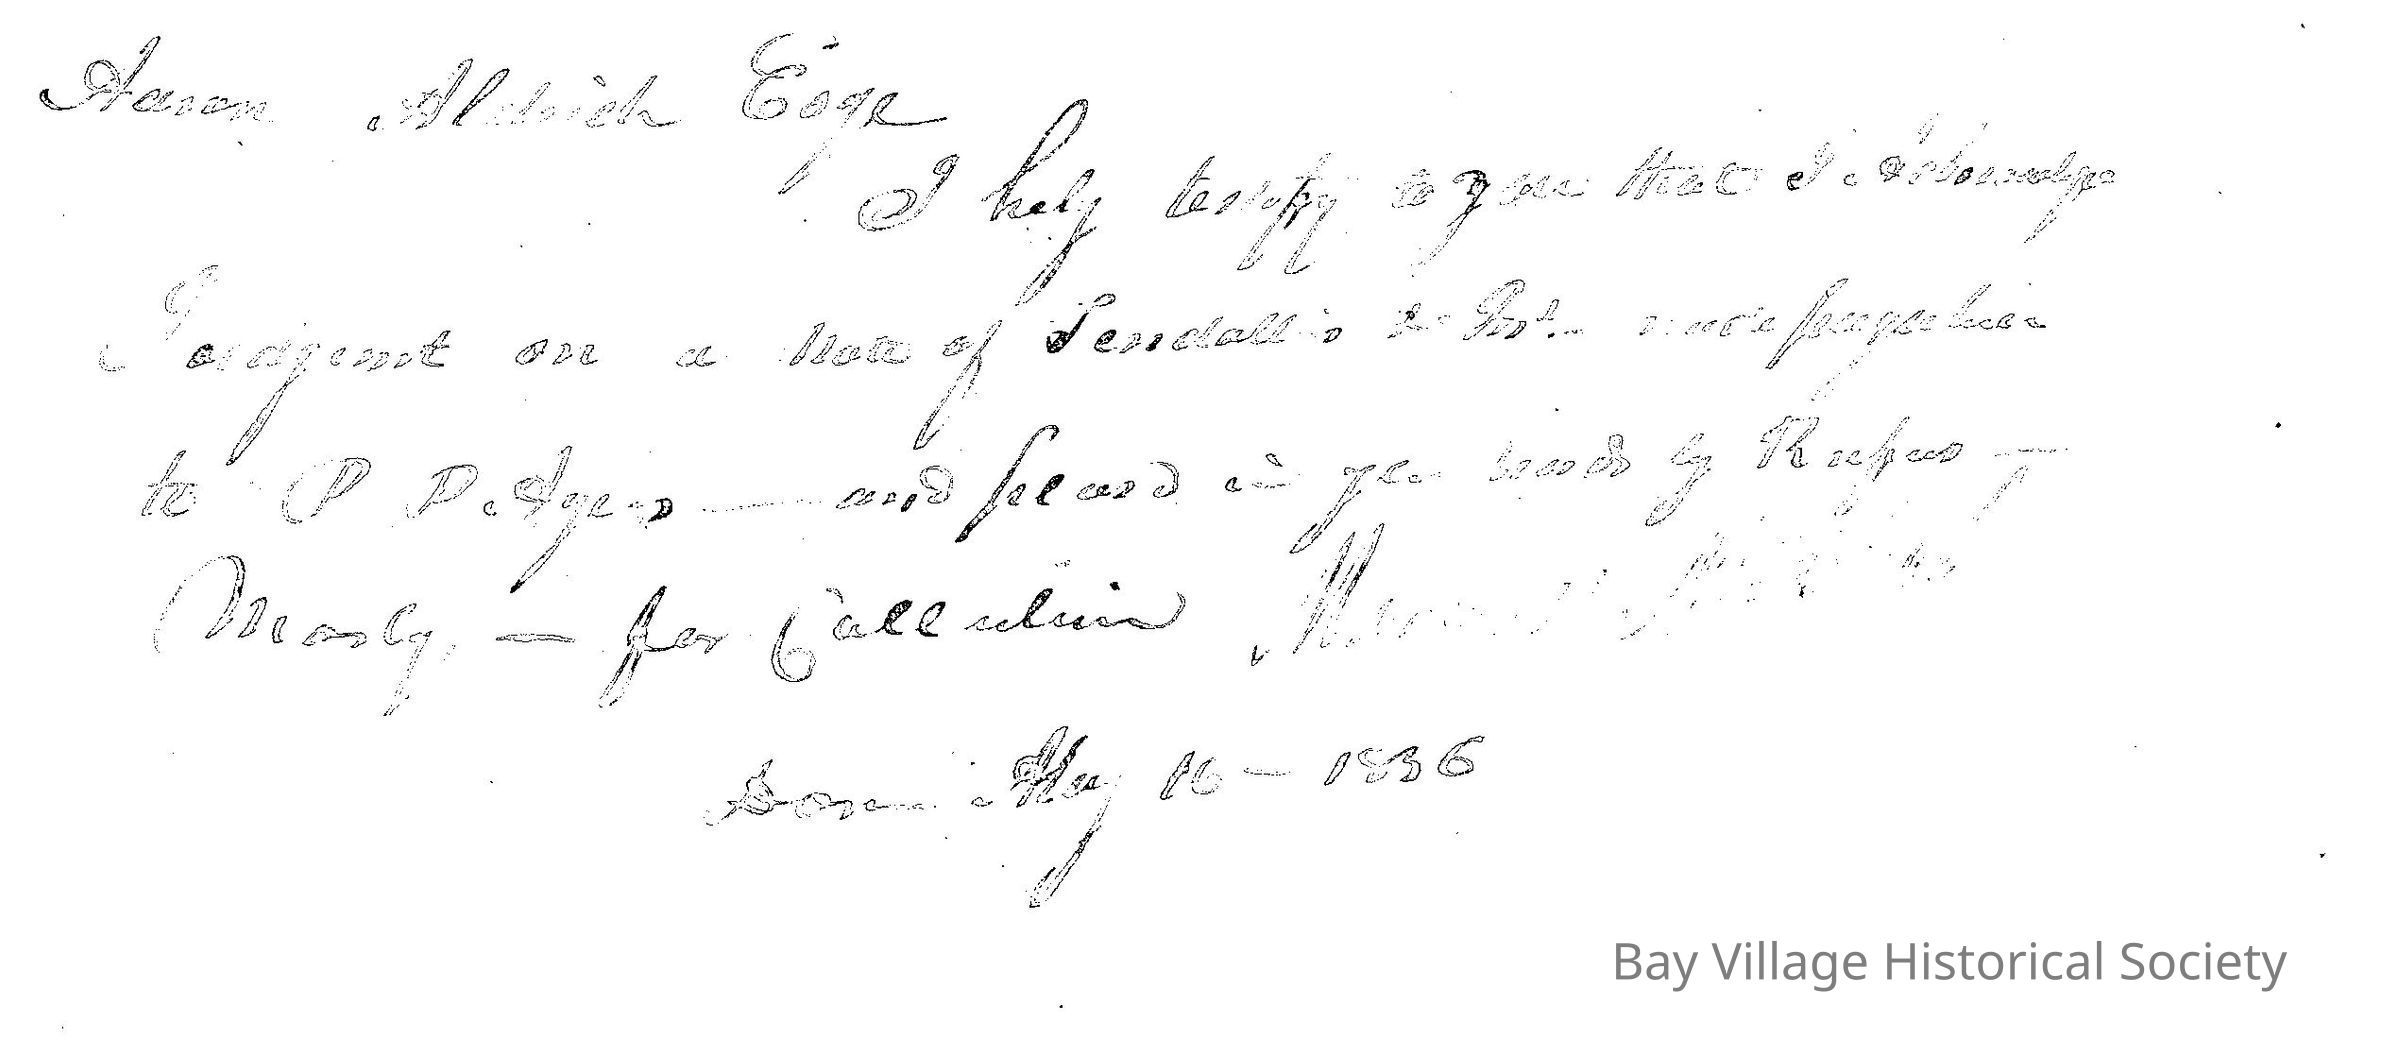 Aaron Aldrich Esqr
I herby testify to you that I Acknowledge
Judgment on a Note of Kendall's & Co. made payable
to P P Ayers — and placed in your hands by Rufus
Mosly, — for Collection
Dover May 16 — 1836
Bay Village Historical Society